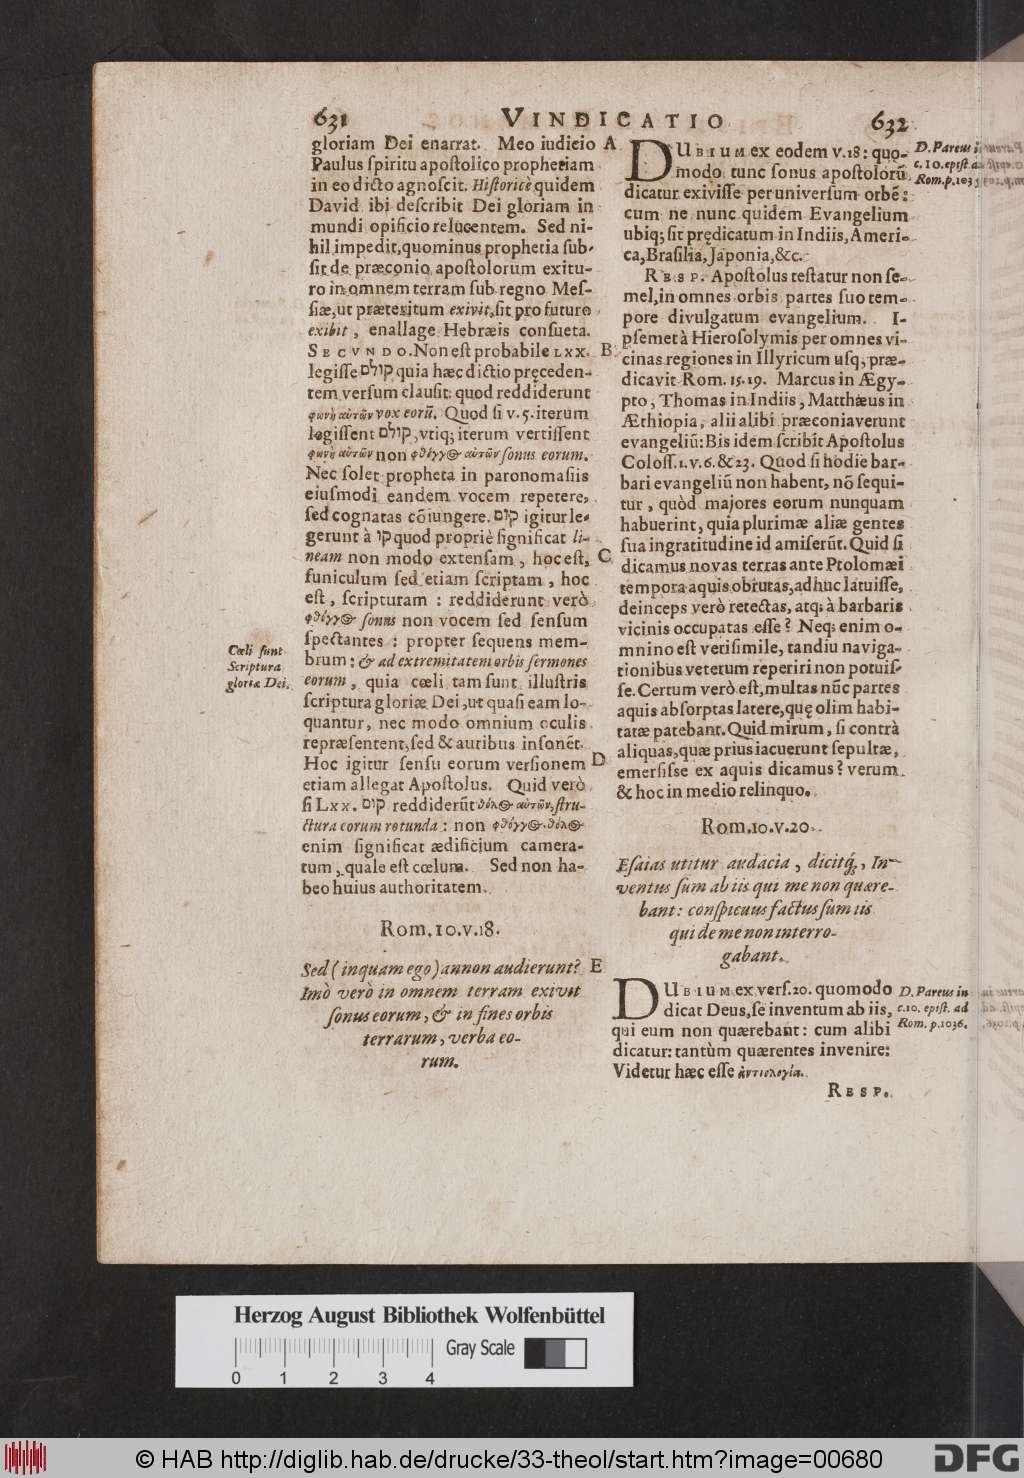 631 VINDICATIO 632
gloriam Dei enarrat. Meo iudicio A
Paulus ſpiritu apoſtolico prophetiam
in eo dicto agnoſcit. Hiſtoricè quidem
David ibi deſcribit Dei gloriam in
mundi opificio relucentem. Sed ni-
hil impedit, quominus prophetia ſub-
ſit de præconio apoſtolorum exitu-
ro in omnem terram ſub regno Meſ-
ſiæ, ut præteritum exivit, ſit pro futuro
exibit, enallage Hebræis conſueta.
SECVNDO. Non eſt probabile LXX. B
legiſſe קולם quia hæc dictio pręceden-
tem verſum clauſit: quod reddiderunt
φωνὴ αὐτῶν vox eorũ. Quod ſi v. 5. iterum
legiſſent קולם, vtiq; iterum vertiſſent
φωνὴ αὐτῶν non φθόγγ@ αὐτῶν ſonus eorum.
Nec ſolet propheta in paronomaſiis
eiuſmodi eandem vocem repetere,
ſed cognatas cõiungere. קום igitur le-
gerunt à קו quod propriè ſignificat li-
neam non modo extenſam, hoc eſt, C
funiculum ſed etiam ſcriptam, hoc
eſt, ſcripturam: reddiderunt verò
φθόγγ@ ſonus non vocem ſed ſenſum
ſpectantes: propter ſequens mem-
brum: & ad extremitatem orbis ſermones
eorum, quia cœli tam ſunt illuſtris
ſcriptura gloriæ Dei, ut quaſi eam lo-
quantur, nec modo omnium oculis
repræſentent, ſed & auribus inſonẽt.
Hoc igitur ſenſu eorum verſionem D
etiam allegat Apoſtolus. Quid verò
ſi LXX. קום reddiderũt θόλ@ αὐτῶν, ſtru-
ctura eorum rotunda: non φθόγγ@. θόλ@
enim ſignificat ædificium camera-
tum, quale eſt cœlum. Sed non ha-
beo huius authoritatem.
Cœli ſunt
Scriptura
gloriæ Dei.
Rom. 10. v. 18.
Sed (inquam ego) annon audierunt? E
Imò verò in omnem terram exivit
ſonus eorum, & in fines orbis
terrarum, verba eo-
rum.
DUBIUM ex eodem v. 18: quo-
modo tunc ſonus apoſtolorũ
dicatur exiviſſe per univerſum orbẽ:
cum ne nunc quidem Evangelium
ubiq; ſit prędicatum in Indiis, Ameri-
ca, Braſilia, Japonia, &c.
RESP. Apoſtolus teſtatur non ſe-
mel, in omnes orbis partes ſuo tem-
pore divulgatum evangelium. I-
pſemet à Hieroſolymis per omnes vi-
cinas regiones in Illyricum uſq; præ-
dicavit Rom. 15. 19. Marcus in Ægy-
pto, Thomas in Indiis, Matthæus in
Æthiopia, alii alibi præconiaverunt
evangeliũ: Bis idem ſcribit Apoſtolus
Coloſſ. 1. v. 6. & 23. Quod ſi hodie bar-
bari evangeliũ non habent, nõ ſequi-
tur, quòd majores eorum nunquam
habuerint, quia plurimæ aliæ gentes
ſua ingratitudine id amiſerũt. Quid ſi
dicamus novas terras ante Ptolomæi
tempora aquis obrutas, adhuc latuiſſe,
deinceps verò retectas, atq; à barbaris
vicinis occupatas eſſe? Neq; enim o-
mnino eſt veriſimile, tandiu naviga-
tionibus veterum reperiri non potuiſ-
ſe. Certum verò eſt, multas nũc partes
aquis abſorptas latere, quę olim habi-
tatæ patebant. Quid mirum, ſi contrà
aliquas, quæ prius iacuerunt ſepultæ,
emerſiſſe ex aquis dicamus? verum
& hoc in medio relinquo.
D. Pareus i
c. 10. epiſt. a
Rom. p. 1035
Rom. 10. v. 20.
Eſaias utitur audacia, dicitq́;, In-
ventus ſum ab iis qui me non quære-
bant: conſpicuus factus ſum iis
qui de me non interro-
gabant.
DUBIUM ex verſ. 20. quomodo
dicat Deus, ſe inventum ab iis,
qui eum non quærebant: cum alibi
dicatur: tantùm quærentes invenire:
Videtur hæc eſſe ἀντιλογία.
D. Pareus in
c. 10. epiſt. ad
Rom. p. 1036.
RESP.
Herzog August Bibliothek Wolfenbüttel
Gray Scale
0 1 2 3 4
© HAB http://diglib.hab.de/drucke/33-theol/start.htm?image=00680
DFG